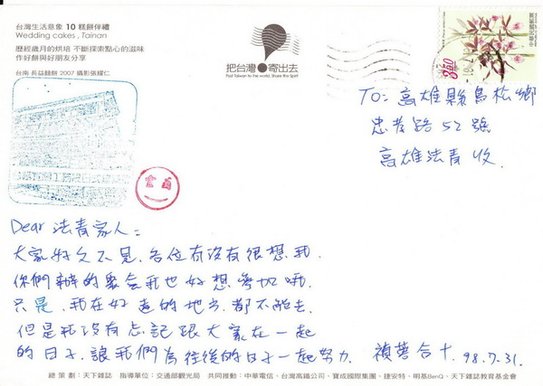 台灣生活意象 10 糕餅伴禮
Wedding cakes , Tainan
歷經歲月的烘培 不斷探索點心的滋味
作好餅與好朋友分享
台南 長益餞餅 2007 攝影張耀仁
把台灣寄出去
Post Taiwan to the world, Share the Spirit
中華民國郵票
350
To: 高雄縣鳥松鄉
忠孝路52號
高雄法青 收
Dear 法青家人:
大家好久不見, 各位有沒有很想我,
你們辦的聚會我也好想參加哦,
只是, 我在好遠的地方, 都不能去,
但是我沒有忘記跟大家在一起
的日子, 讓我們為往後的日子一起努力
禎蓉合十. 98.7.31.
總 策 劃:天下雜誌 指導單位:交通部觀光局 共同推動:中華電信、台灣高鐵公司、寶成國際集團、捷安特、明基BenQ、天下雜誌教育基金會